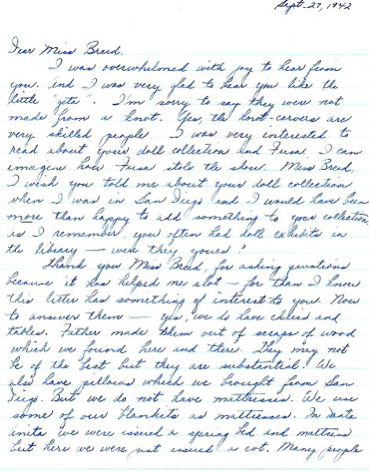 Sept. 27, 1942
Dear Miss Breed,
I was overwhelmed with joy to hear from
you. And I was very glad to hear you like the
little "geta". I'm sorry to say they were not
made from a knot. Yes, the knot-carvers are
very skilled people. I was very interested to
read about your doll collection and Fusa. I can
imagine how Fusa stole the show. Miss Breed,
I wish you told me about your doll collection
when I was in San Diego and I would have been
more than happy to add something to your collection,
as I remember you often had doll exhibits in
the library — were they yours?
Thank you Miss Breed, for asking questions
because it has helped me alot — for than I know
this letter has something of interest to you. Now
to answer them — yes, we do have chairs and
tables. Father made them out of scraps of wood
which we found here and there. They may not
be of the best but they are substantial. We
also have pillows which we brought from San
Diego. But we do not have mattresses. We use
some of our blankets as mattresses. In Santa
Anita we were issued a spring bed and mattress
but here we were issued a cot. Many people